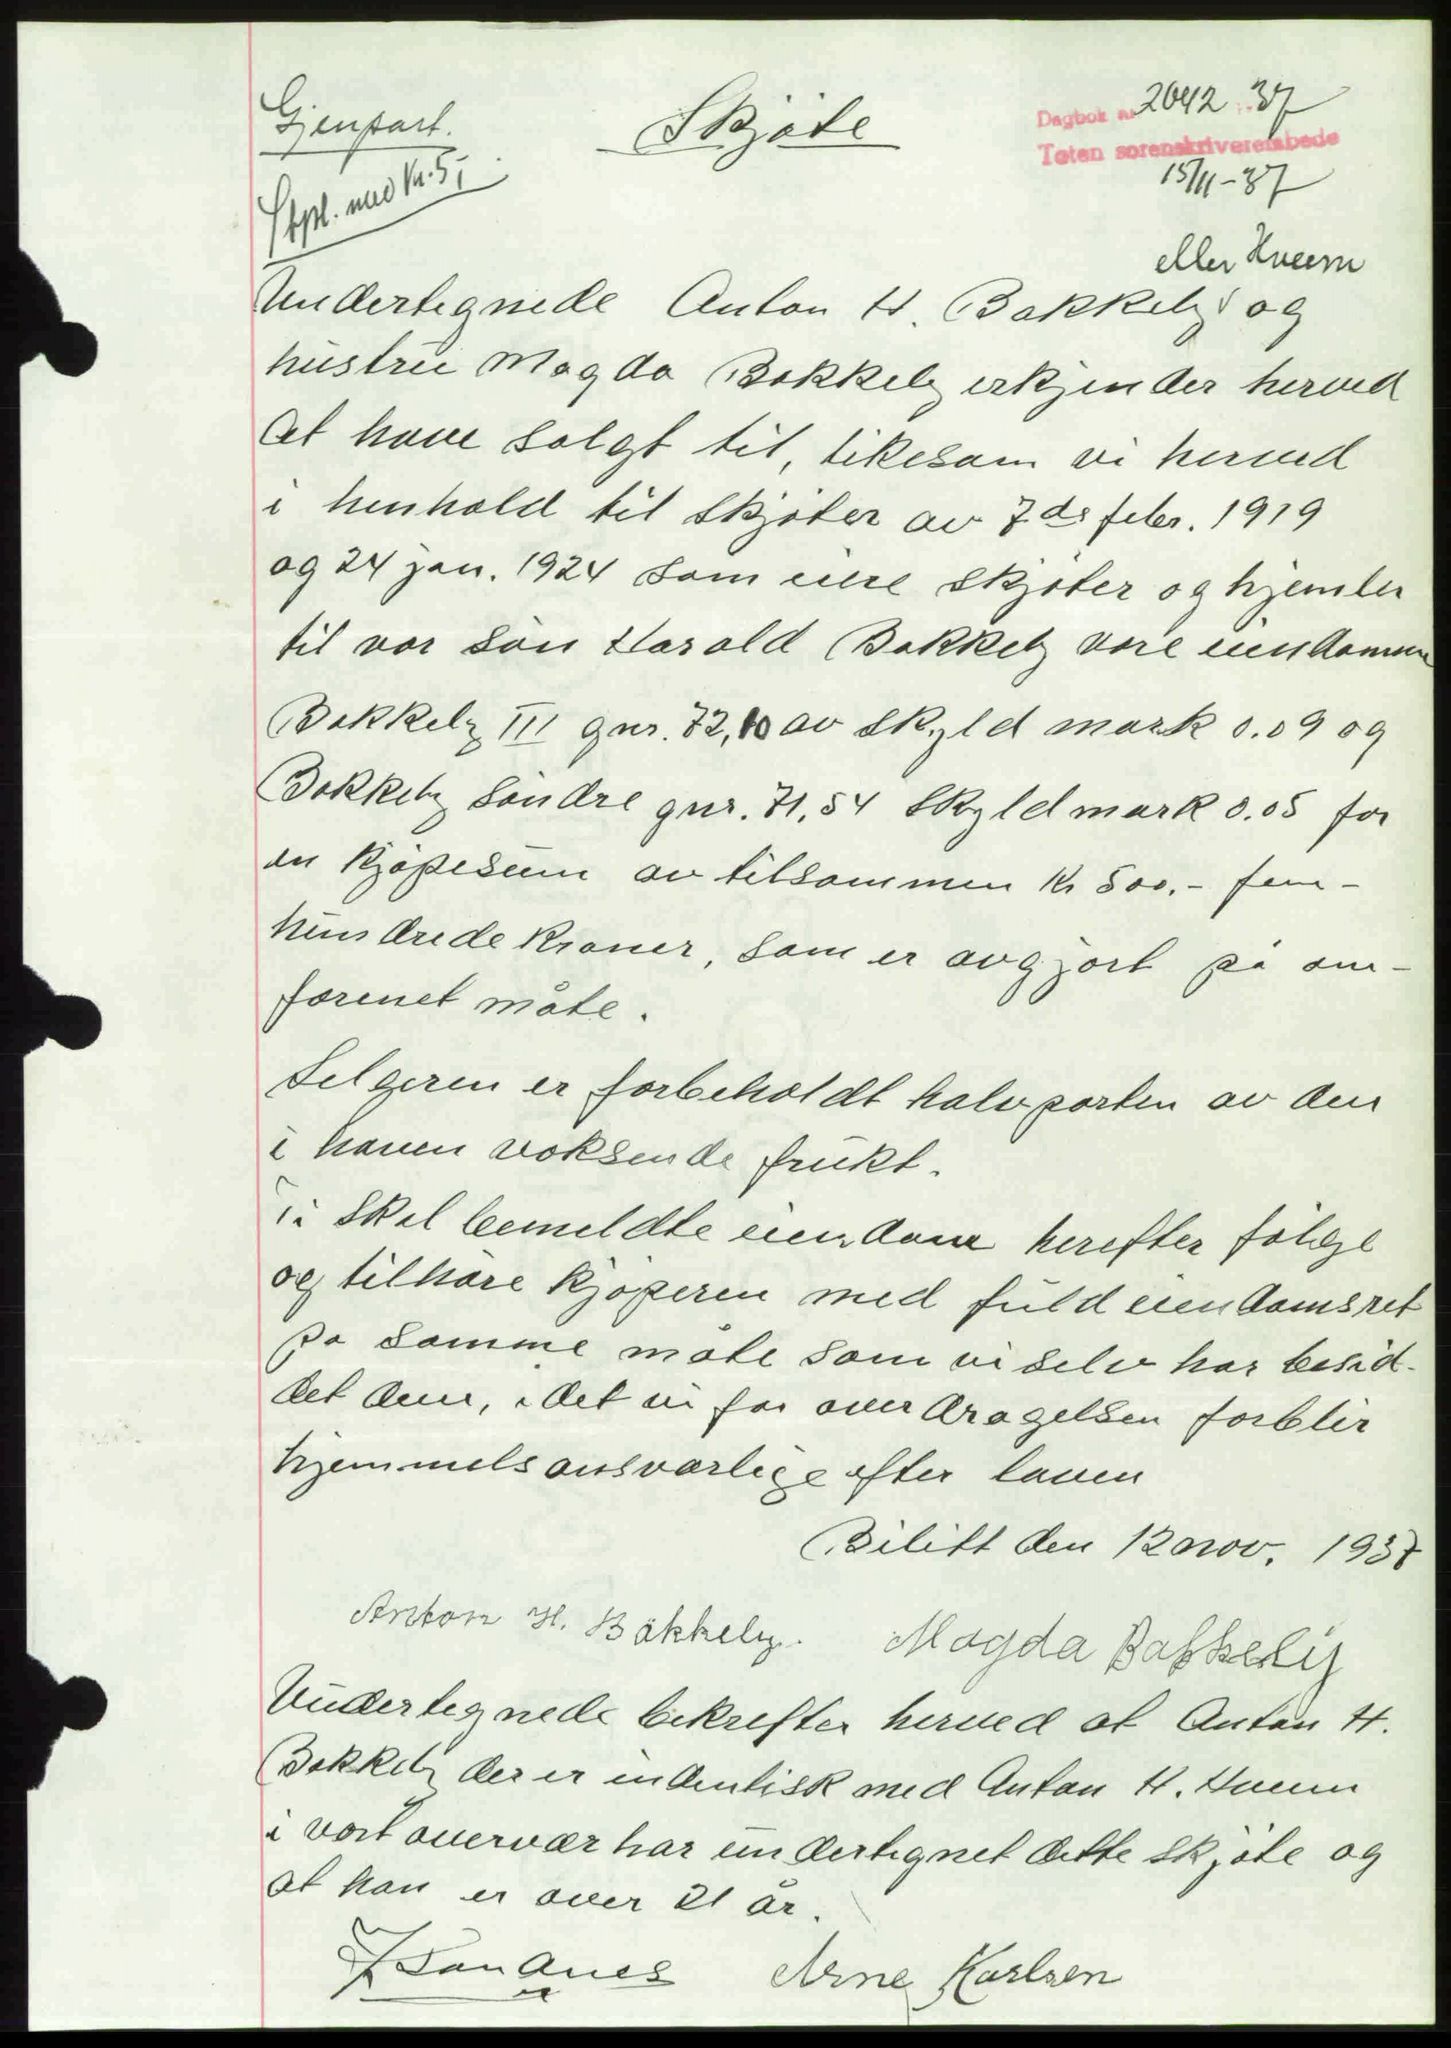 Gjenpart.
Skjøte
Dagbok nr. 2042 37
Toten sorenskriverembede
15/11-37
Stpl. med kr. 5,-
eller Hveem
Undertegnede Anton H. Bakkely og
hustru Magda Bakkely erkjender herved
at have solgt til, likesom vi herved
i henhold til skjøter av 7de febr. 1919
og 24 jan. 1924 som eiere skjøter og hjemler
til vor søn Harald Bakkely vore eiendomme
Bakkely III gnr. 72,10 av skyld mark 0.09 og
Bakkely søndre gnr. 71,54 skyldmark 0.05 for
en kjøpesum av tilsammen kr 500.- fem-
hundrede kroner, som er avgjort på om-
forenet måte.
Selgeren er forbeholdt halvparten av den
i haven voksende frukt.
Ti skal bemeldte eiendom herefter følge
og tilhøre kjøperen med fuld eiendomsret
på samme måte som vi selv har besid-
det dem, idet vi for overdragelsen forblir
hjemmelsansvarlige efter loven
Bilitt den 12 nov. 1937
Anton H. Bakkely. Magda Bakkely
Undertegnede bekrefter herved at Anton H.
Bakkely der er indentisk med Anton H. Hveem
i vort overvær har undertegnet dette skjøte og
at han er over 21 år.
Arne Karlsen